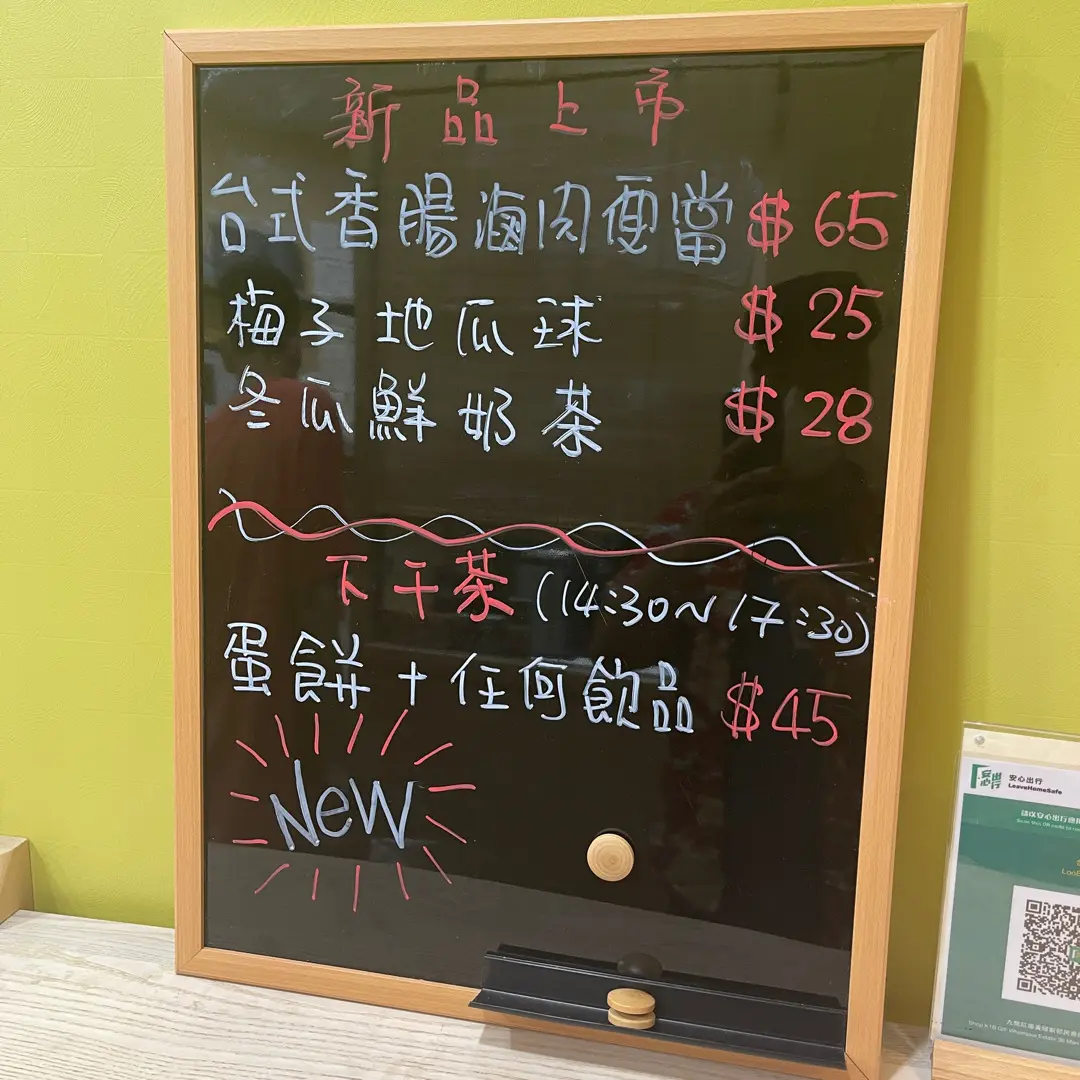 新品上市
台式香腸滷肉便當 $65
梅子地瓜球 $25
冬瓜鮮奶茶 $28
下午茶 (14:30~17:30)
蛋餅+任何飲品 $45
New
安心出行
LeaveHomeSafe